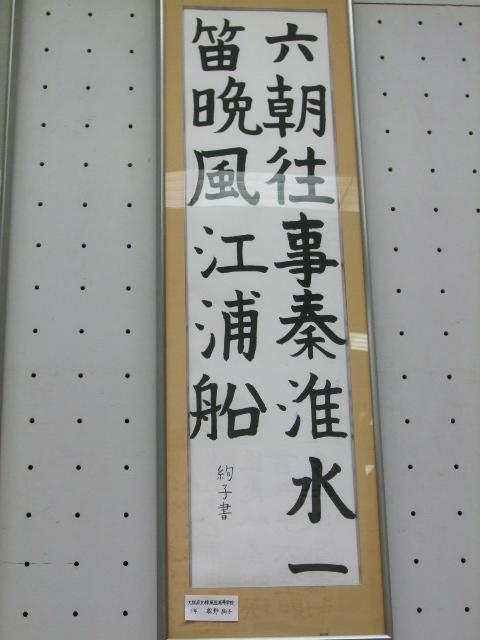 六朝往事秦淮水一
笛晩風江浦船
絢子書
1年